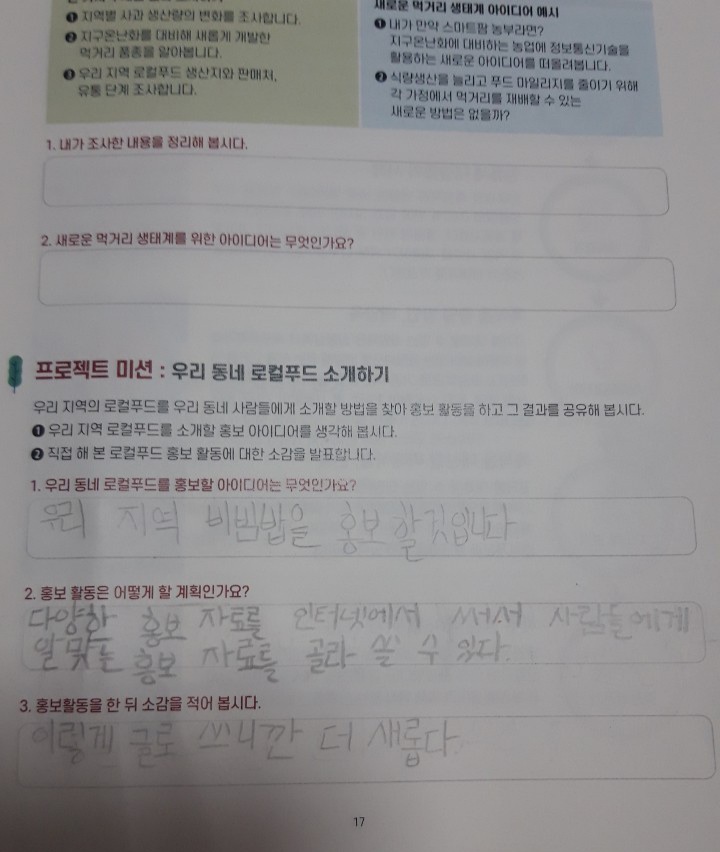 ❶ 지역별 사과 생산량의 변화를 조사합니다.
❷ 지구온난화를 대비해 새롭게 개발한
먹거리 품종을 알아봅니다.
❸ 우리 지역 로컬푸드 생산지와 판매처,
유통 단계 조사합니다.
새로운 먹거리 생태계 아이디어 예시
❶ 내가 만약 스마트팜 농부라면?
지구온난화에 대비하는 농업에 정보통신기술을
활용하는 새로운 아이디어를 떠올려봅니다.
❷ 식량생산을 늘리고 푸드 마일리지를 줄이기 위해
각 가정에서 먹거리를 재배할 수 있는
새로운 방법은 없을까?
1. 내가 조사한 내용을 정리해 봅시다.
2. 새로운 먹거리 생태계를 위한 아이디어는 무엇인가요?
프로젝트 미션 : 우리 동네 로컬푸드 소개하기
우리 지역의 로컬푸드를 우리 동네 사람들에게 소개할 방법을 찾아 홍보 활동을 하고 그 결과를 공유해 봅시다.
❶ 우리 지역 로컬푸드를 소개할 홍보 아이디어를 생각해 봅시다.
❷ 직접 해 본 로컬푸드 홍보 활동에 대한 소감을 발표합니다.
1. 우리 동네 로컬푸드를 홍보할 아이디어는 무엇인가요?
우리 지역 비빔밥을 홍보할것입니다
2. 홍보 활동은 어떻게 할 계획인가요?
다양한 홍보 자료를 인터넷에서 써서 사람들에게
알맞는 홍보 자료를 골라 쓸 수 있다.
3. 홍보활동을 한 뒤 소감을 적어 봅시다.
이렇게 글로 쓰니깐 더 새롭다
17